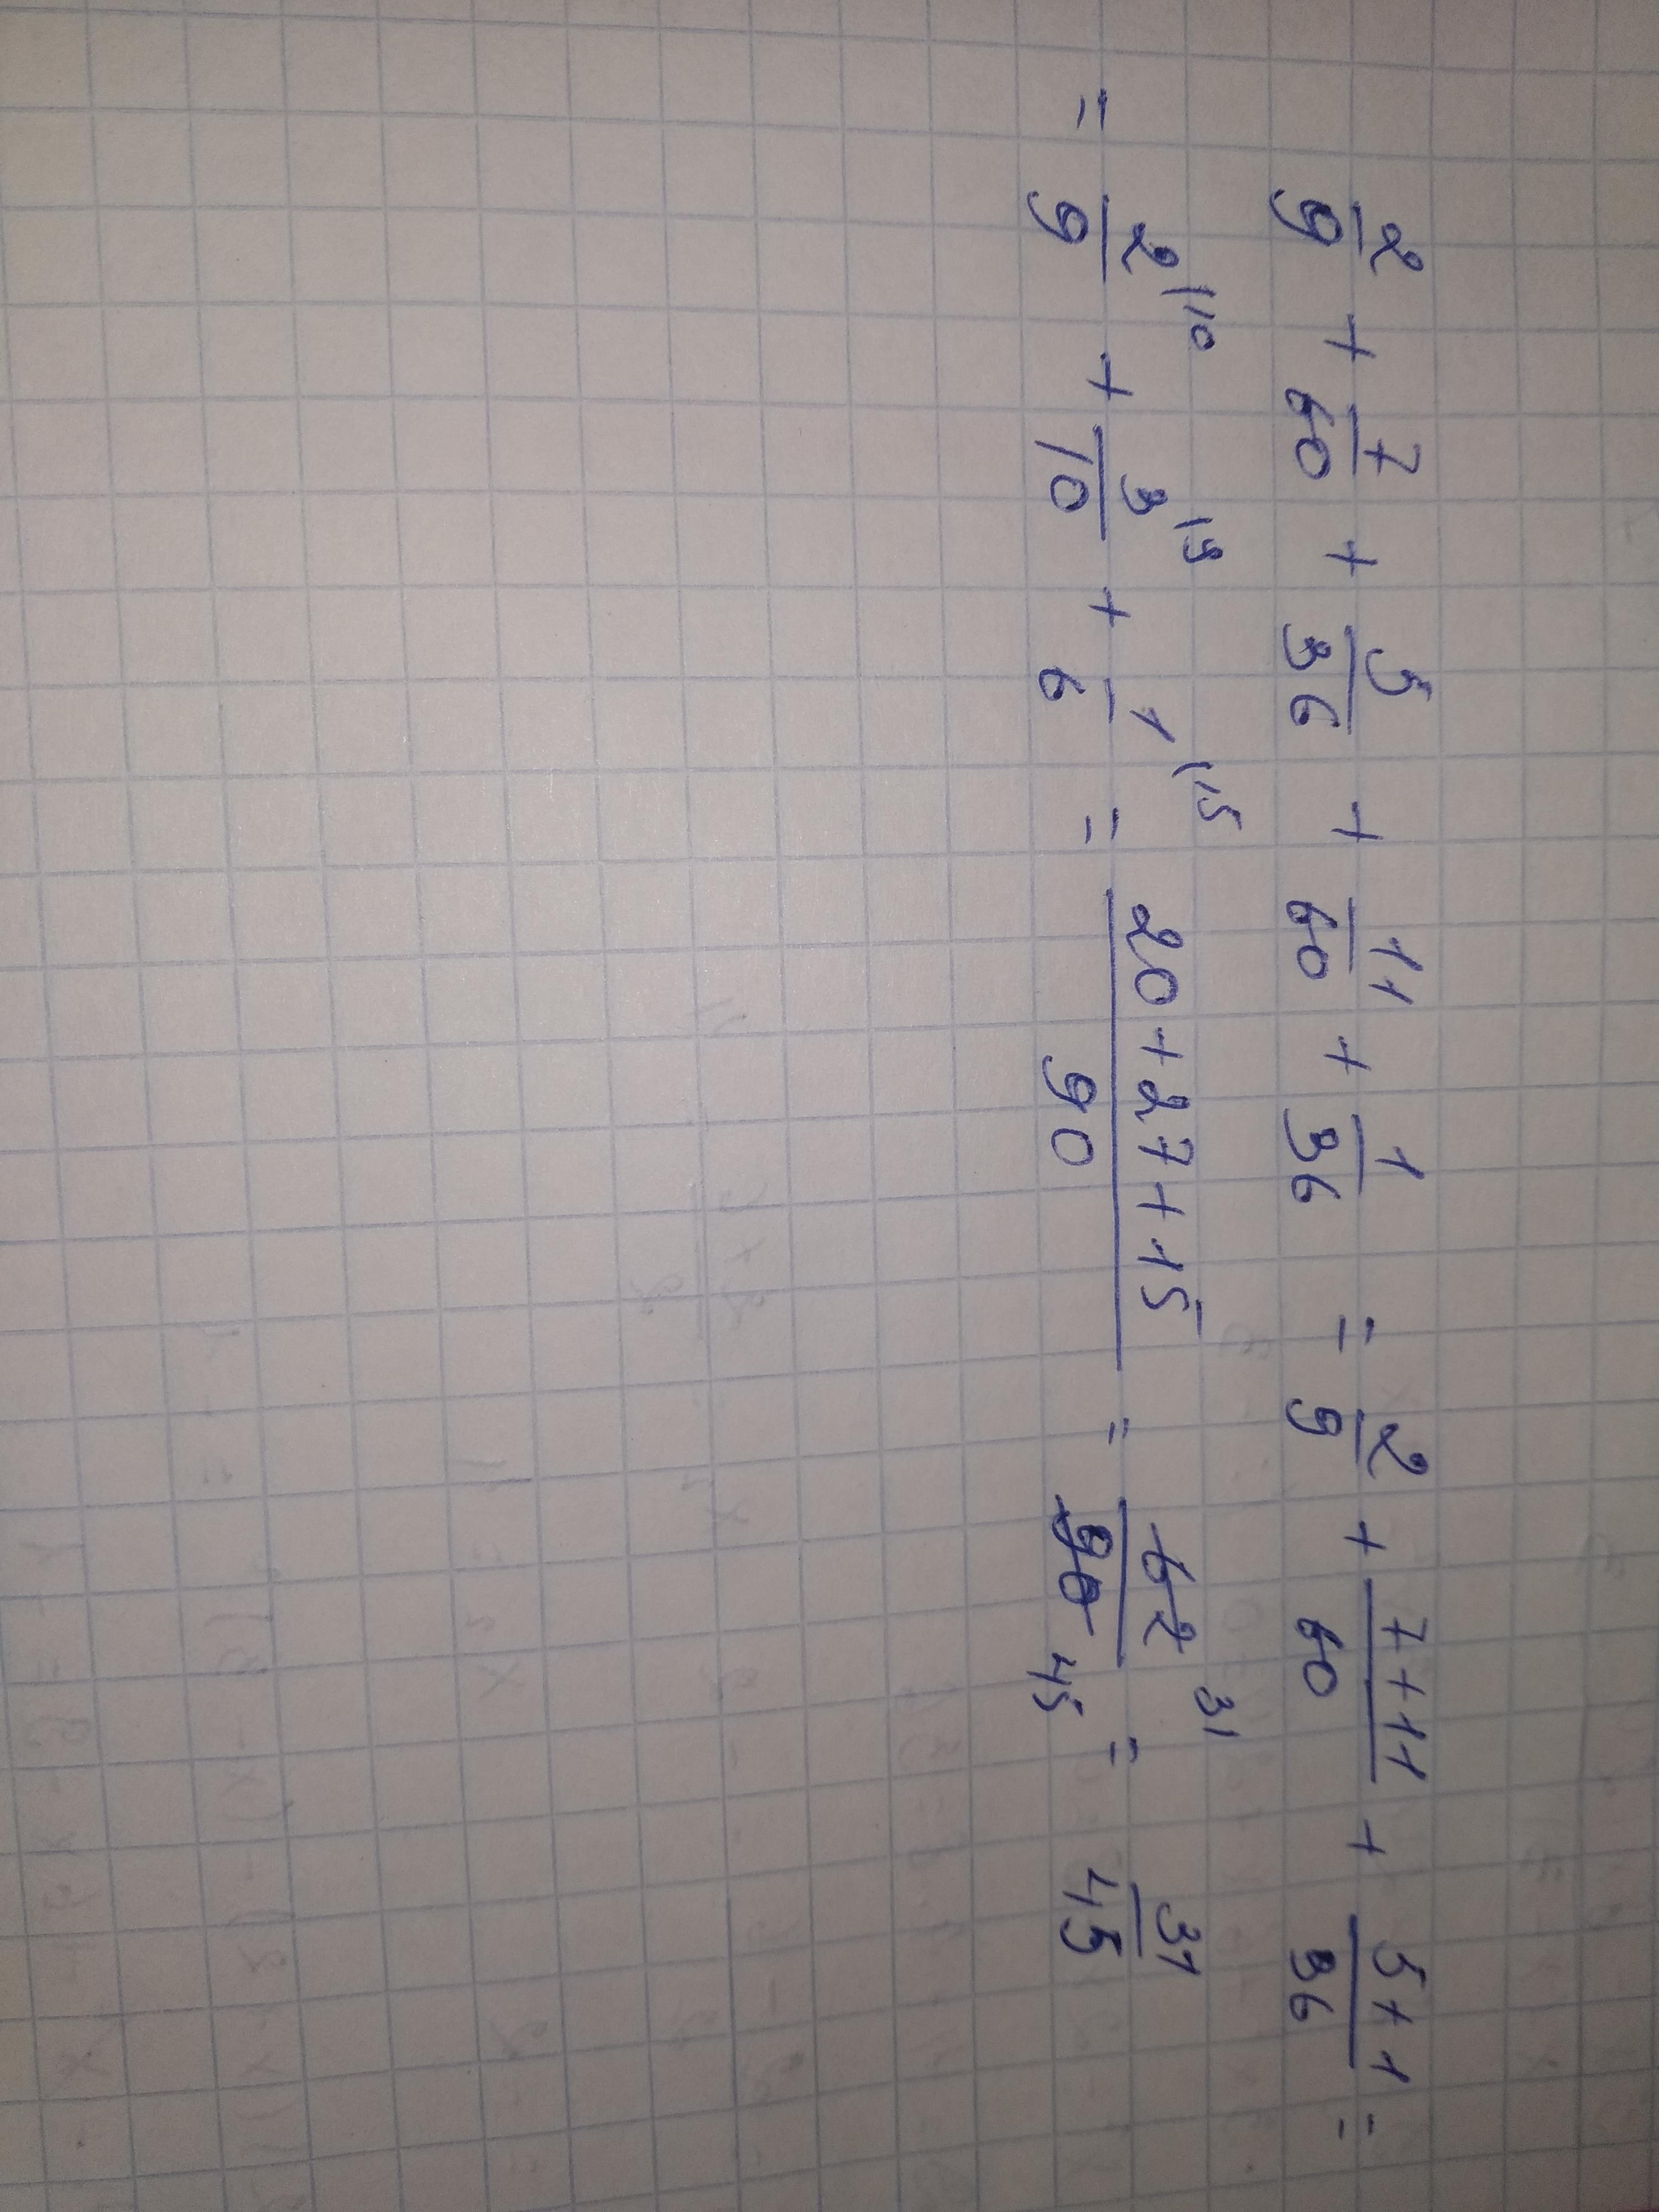 2/9 + 7/60 + 5/36 + 11/60 + 1/36 = 2/9 + (7+11)/60 + (5+1)/36 =
= 2\10/9 + 3\9/10 + 1\15/6 = (20+27+15)/90 = 62 31/90 45 = 31/45